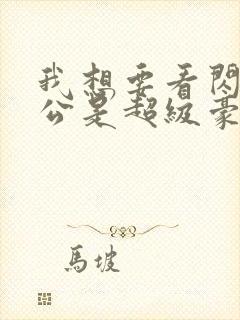 我想要看閃
公是超級豪
馬坡